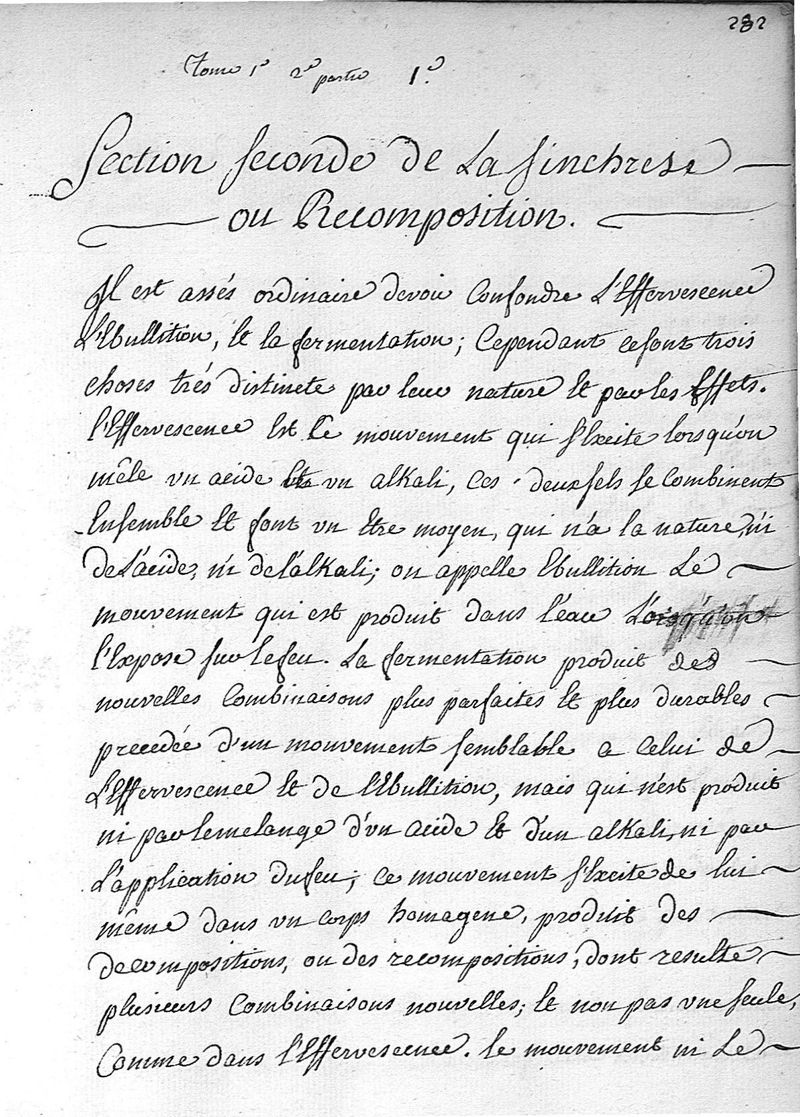 282
Tome 1e 2e partie 1e.
Section seconde de La sinchrese
ou Recomposition.
Il est assés ordinaire devoir Confondre L'Effervescence
L'Ebullition, Et la fermentation; Cependant cesont trois
choses trés distincte par leur nature Et par les Effets.
l'Effervescence Est Le mouvement qui s'Excite lorsqu'on
mêle un acide Et un alkali, Ces deux sels se Combinent
Ensemble Et font un Etre moyen, qui n'a la nature, ni
de L'acide, ni de l'alkali; on appelle Ebullition Le
mouvement qui est produit dans l'eau Lorsqu'on
l'Expose sur le feu. La fermentation produit des
nouvelles Combinaisons plus parfaites Et plus durables
precedée d'un mouvement semblable a Celui de
L'Effervescence Et de l'Ebullition, mais qui n'est produit
ni par lemelange d'un acide Et d'un alkali, ni par
L'application du feu; ce mouvement s'Excite de lui
même dans un corps homagene, produit des
decompositions, ou des recompositions, dont resulte
plusieurs Combinaisons nouvelles; Et non pas une seule,
Comme dans l'Effervescence. le mouvement ni Le